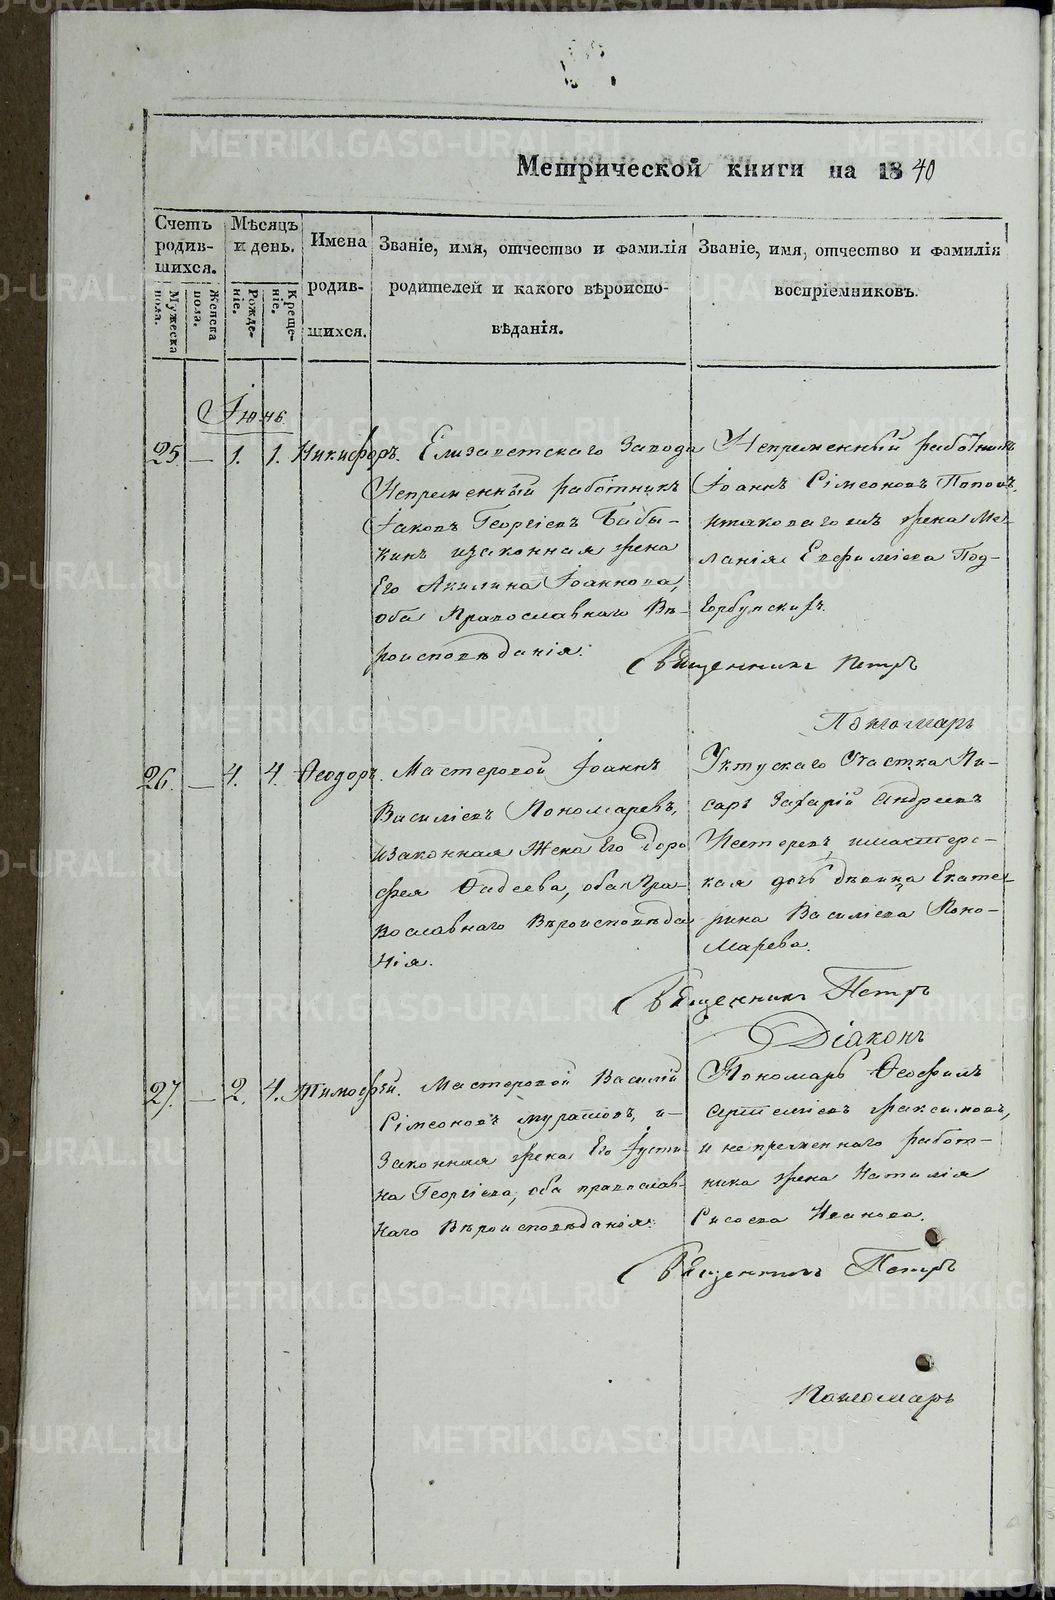 Метрической книги на 1840
Счетъ родив-шихся.
Мужеска пола.
Женска пола.
Мѣсяцъ и день.
Рожде-ніе.
Креще-ніе.
Имена родив-шихся.
Званіе, имя, отчество и фамилія
родителей и какого вѣроиспо-
вѣданія.
Званіе, имя, отчество и фамилія
воспріемниковъ.
Іюнь
25 — 1. 1. Никифоръ.
Елизаветскаго Завода
Непременный работникъ
Іаковъ Георгіевъ Бабы-
кинъ изаконная жена
Его Акилина Іоаннова,
оба Православнаго Вѣ-
роисповѣданія.
Непременный работникъ
Іоаннъ Сімеоновъ Поповъ,
итаковагожъ жена Ме-
ланія Евфиміева Под-
Горбунскихъ.
Священникъ Петръ
Пономарь
26. — 4. 4. Ѳеодоръ.
Мастеровой Іоаннъ
Василіевъ Пономаревъ,
изаконная Жена Его Доро
фея Фадеева, оба Пра-
вославнаго Вѣроисповѣда
нія.
Уктускаго Участка Пи-
сарь Захарій Андреевъ
Нестеревъ, имастерс-
кая дочь дѣвица Екате-
рина Василіева Поно-
марева.
Священникъ Петръ
Діаконъ
27. — 2. 4. Тимоѳей.
Мастеровой Василій
Сімеоновъ Муратовъ, и-
Законная жена Его Іусти-
на Георгіева, оба православ-
наго Вѣроисповѣданія.
Пономарь Ѳеофилъ
жена Наталія
и непременнаго работ-
ника
Сысоева Иванова.
Священникъ Петръ
Пономарь
METRIKI.GASO-URAL.RU